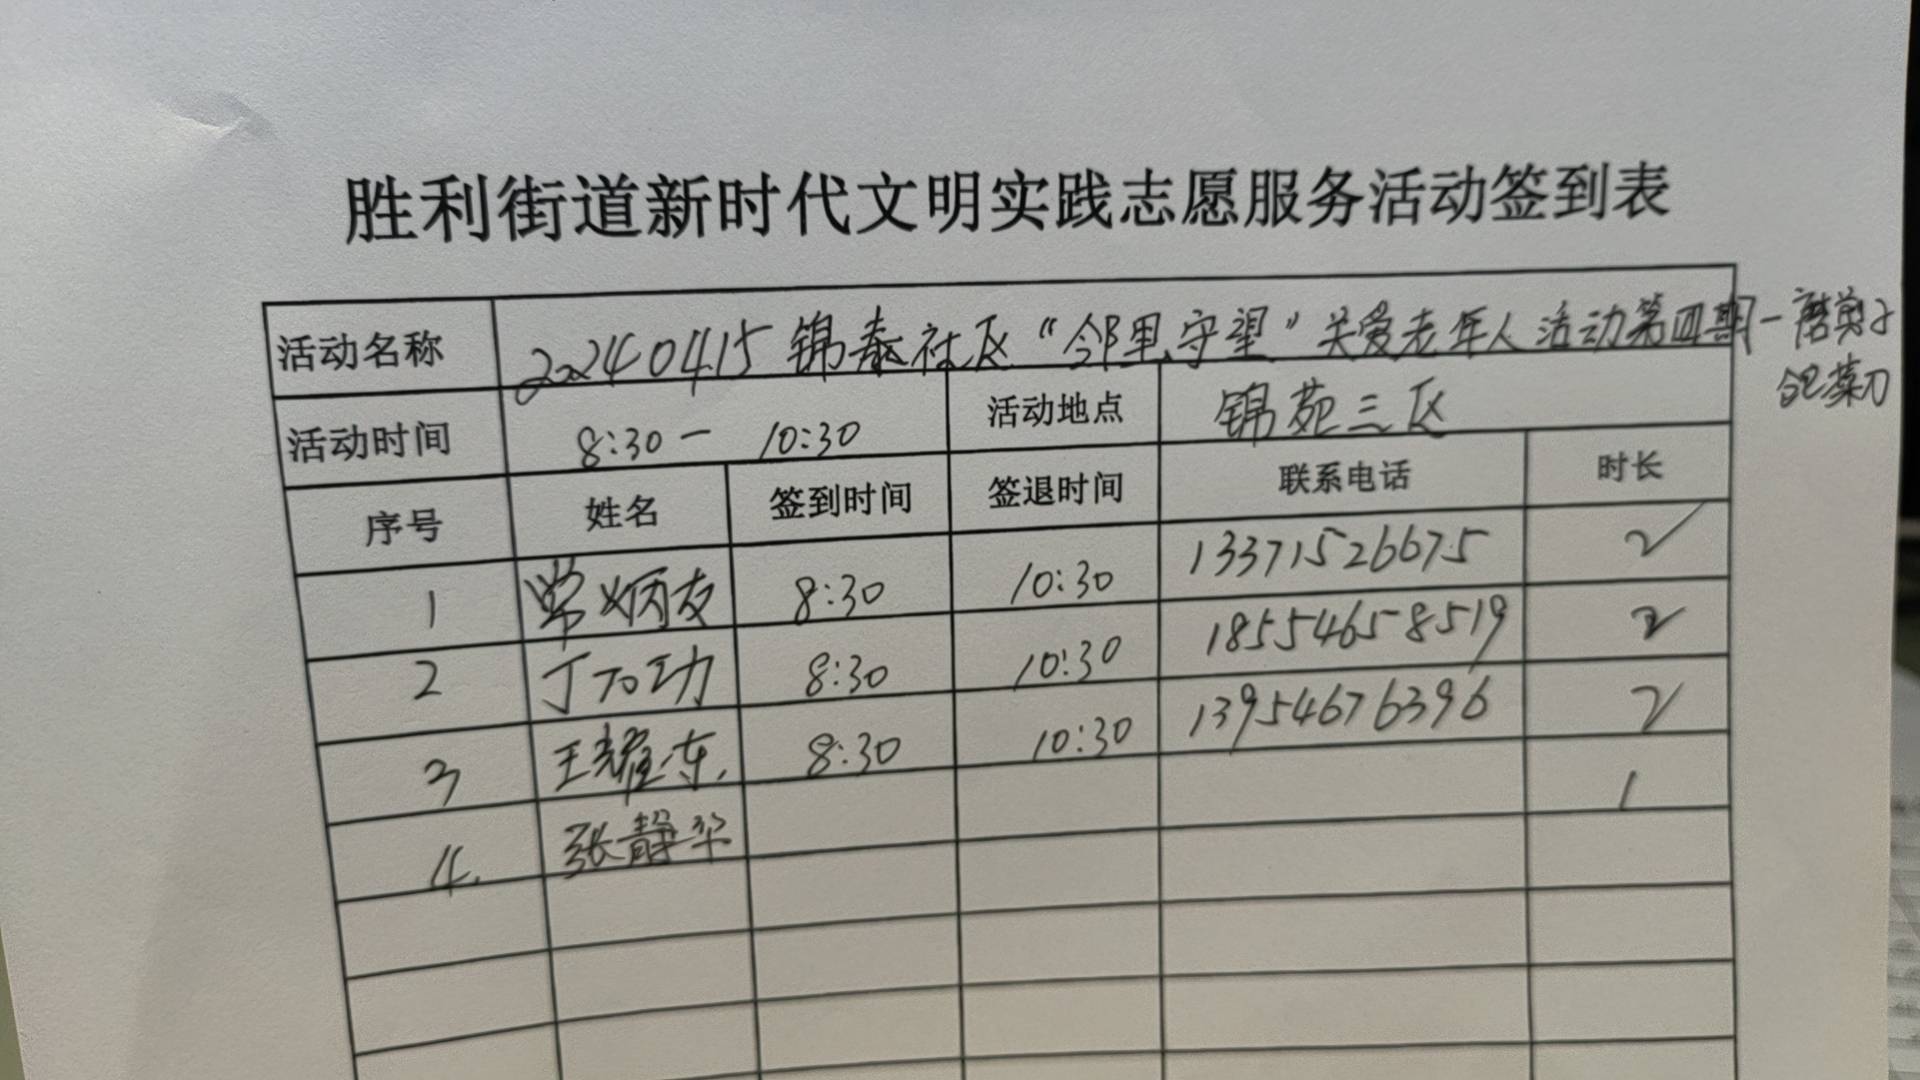 胜利街道新时代文明实践志愿服务活动签到表
活动名称 20240415锦泰社区“邻里守望”关爱老年人活动第四期-磨剪子
菜刀
活动时间 8:30- 10:30 活动地点 锦苑三区
序号 姓名 签到时间 签退时间 联系电话 时长
1 常炳友 8:30 10:30 13371526675 2
2 丁功 8:30 10:30 18554658519 2
3 王耀东 8:30 10:30 13954676396 2
4. 张静华 1